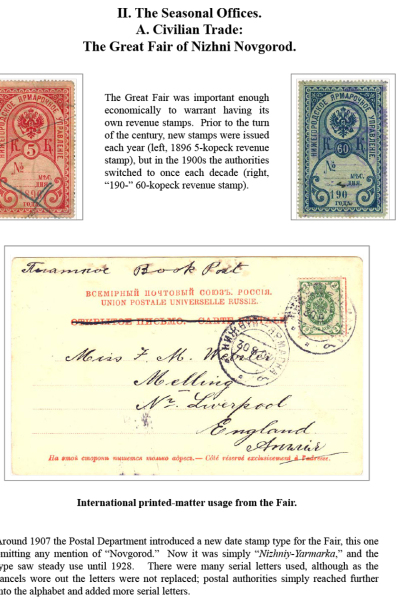 II. The Seasonal Offices.
A. Civilian Trade:
The Great Fair of Nizhni Novgorod.
The Great Fair was important enough
economically to warrant having its
own revenue stamps. Prior to the turn
of the century, new stamps were issued
each year (left, 1896 5-kopeck revenue
stamp), but in the 1900s the authorities
switched to once each decade (right,
“190-” 60-kopeck revenue stamp).
НИЖЕГОРОДСКОЕ ЯРМАРОЧНОЕ УПРАВЛЕНИЕ
К 5 К
№
МѢС.
ДНЯ.
ГОДА.
НИЖЕГОРОДСКОЕ ЯРМАРОЧНОЕ УПРАВЛЕНИЕ
К 60 К
№
МѢС.
ДНЯ.
190
ГОДА.
Book Post
ВСЕМІРНЫЙ ПОЧТОВЫЙ СОЮЗЪ. РОССІЯ.
UNION POSTALE UNIVERSELLE RUSSIE.
ОТКРЫТОЕ ПИСЬМО.
Miss F. M. Webster
Melling
Nr. Liverpool
England
Англія
На этой сторонѣ пишется только адресъ. — Côté réservé exclusivement à l'adresse.
International printed-matter usage from the Fair.
Around 1907 the Postal Department introduced a new date stamp type for the Fair, this one
omitting any mention of “Novgorod.” Now it was simply “Nizhniy-Yarmarka,” and the
type saw steady use until 1928. There were many serial letters used, although as the
cancels wore out the letters were not replaced; postal authorities simply reached further
into the alphabet and added more serial letters.